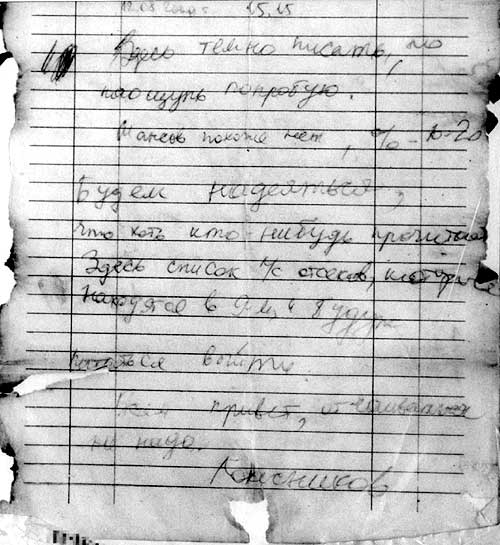 12.08.2000г 15.15
Здесь темно писать, но
наощупь попробую.
Шансов похоже нет, % - 10-20
Будем надеяться,
что хоть кто-нибудь прочитает
Здесь список л/с отсеков, которые
находятся в 9-м и будут
пытаться выйти.
Всем привет, отчаиваться
не надо.
Колесников